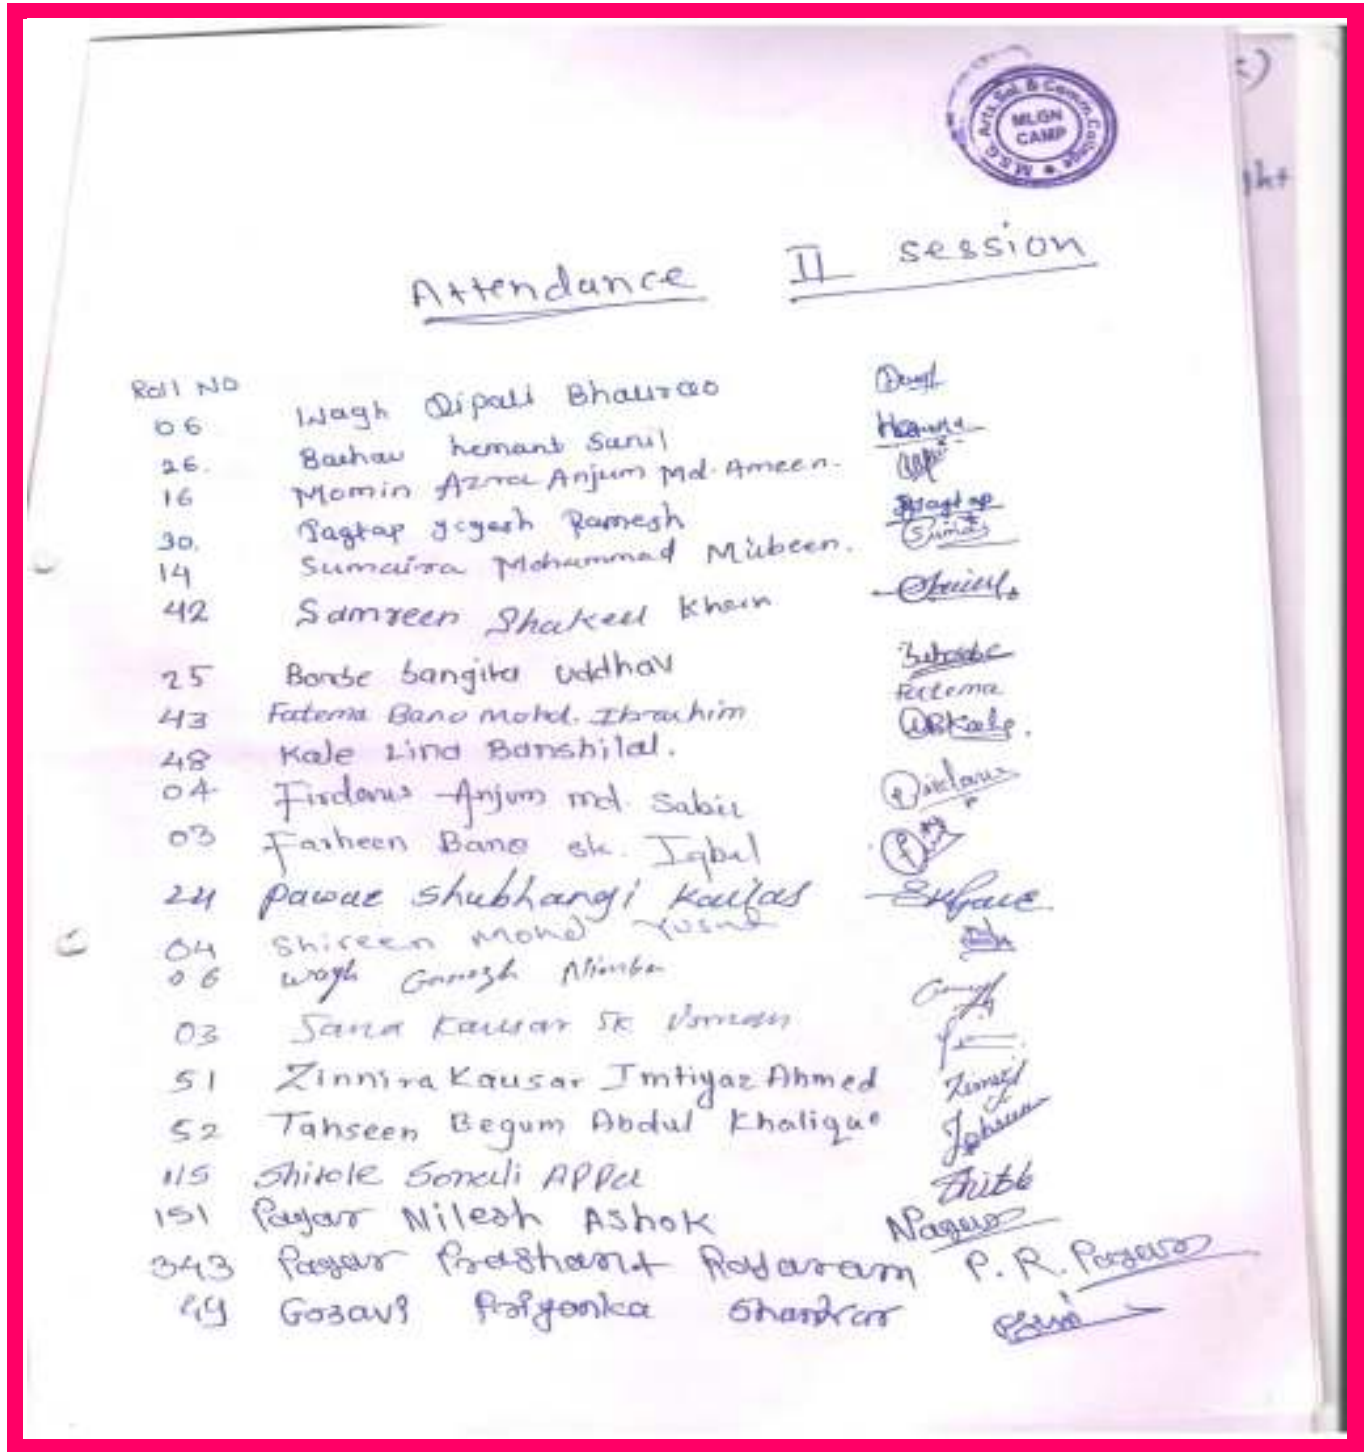 M.S.G. Arts, Sci. & Comm. College
MLGN
CAMP
Attendance II session
Roll NO
06 Wagh Dipali Bhaurao
26. hemant Sunil
16 Momin Azra Anjum Md. Ameen.
30. Jagtap yogesh Ramesh Jagtap
14 Sumaira Mohammad Mubeen.
42 Samreen Shakeel Khan
25 Borse Sangita Uddhav
43 Fatema Bano Mohd. Ibrahim Fatema
48 Kale Lina Banshilal.
04 Firdous Anjum md. Sabir
03 Farheen Bano sk. Iqbal
24 Pawar Shubhangi Kailas
04 Shireen Mohd Yusuf
06 Wagh Ganesh Nimba
03 Sana Kausar SK Usman
51 Zinnira Kausar Imtiyaz Ahmed
52 Tahseen Begum Abdul Khalique
115 Shitole Sonali APPa
151 Pagar Nilesh Ashok NPagar
343 Pagar Prashant Rajaram P. R. Pagar
49 Gosavi Priyanka Shankar